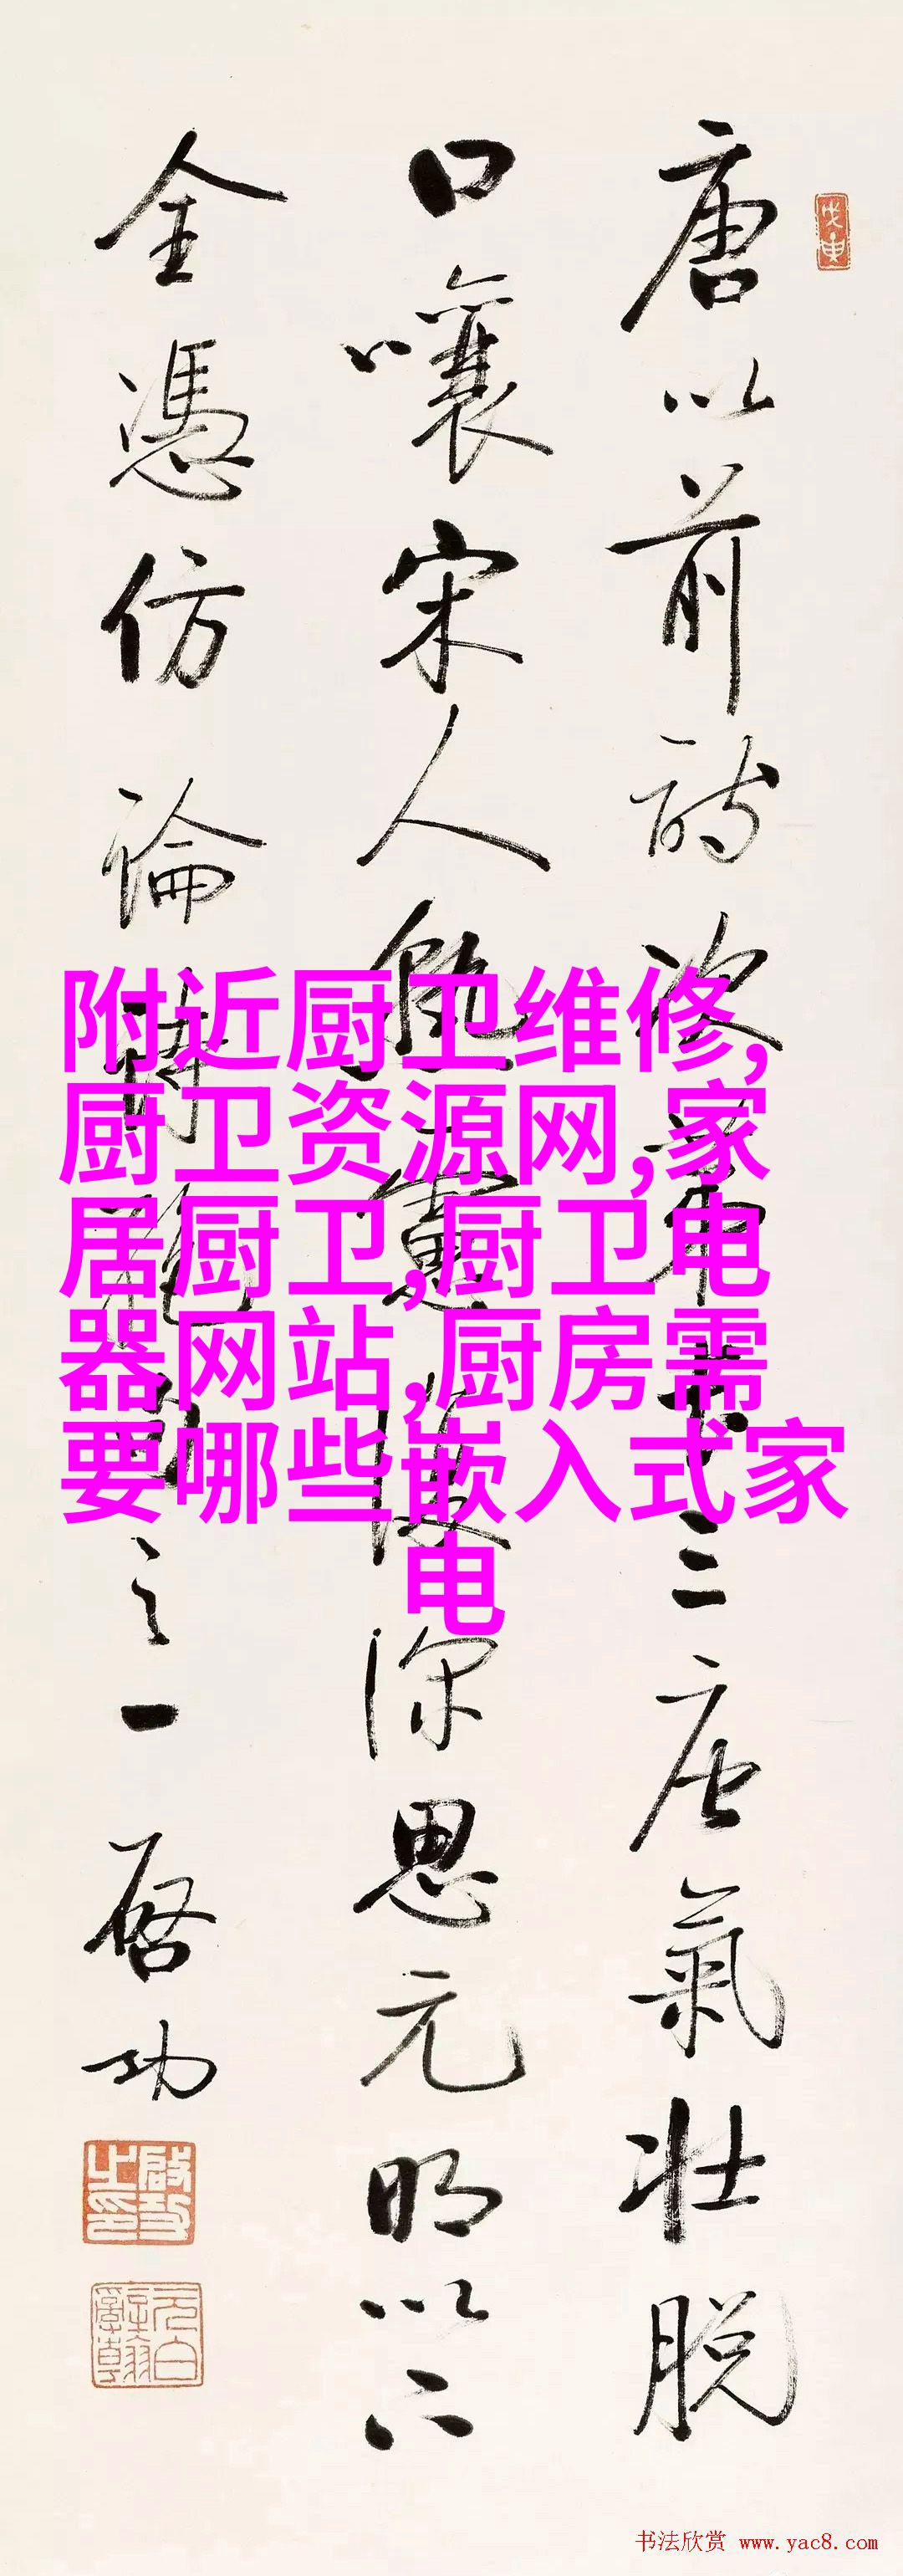 唐以前詩次第長三唐氣壯脫
口嚷宋人深思元明以下
全憑仿 論詩絕句之一
啓功
戊申
啟功之印
附近厨卫维修,
厨卫资源网,家
居厨卫,厨卫电
器网站,厨房需
要哪些嵌入式家
电
书法欣赏 www.yac8.com